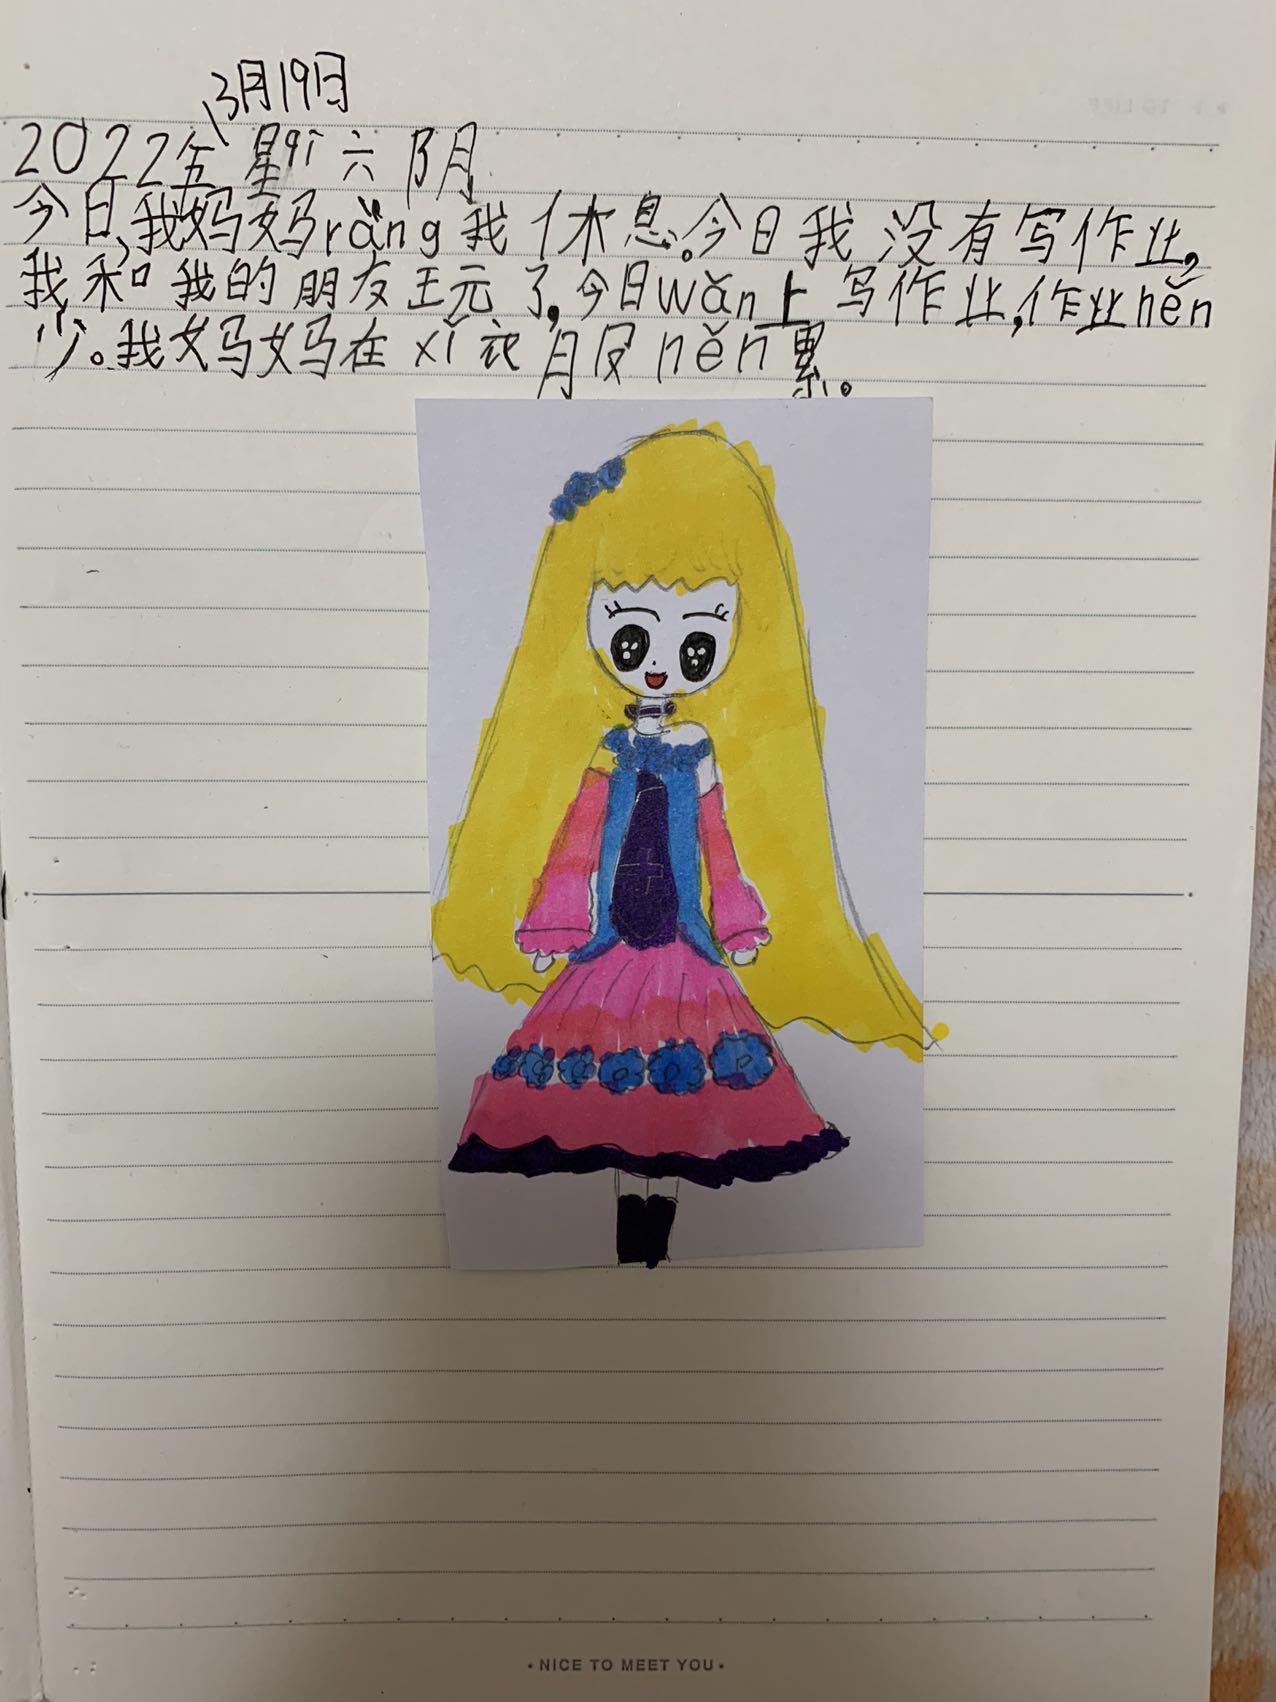 3月19日
2022年 星qi 六 阴
今日,我妈妈rǎng我休息。今日我没有写作业,
我和我的朋友王元了,今日wǎn上写作业,作业hěn
少。我妈妈在xǐ衣服hěn累。
• NICE TO MEET YOU •